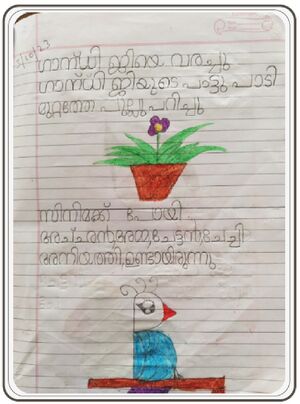 5/10/23
ഗാന്ധി ജിയെ വരച്ചു
ഗാന്ധി ജിയുടെ പാട്ടു പാടി
മുറ്റത്തെ പുല്ലു പറിച്ചു
സിനിമക്ക് പോയി
അച്ഛൻ,അമ്മ,ചേട്ടൻ,ചേച്ചി
അനിയത്തി,ഉണ്ടായിരുന്നു